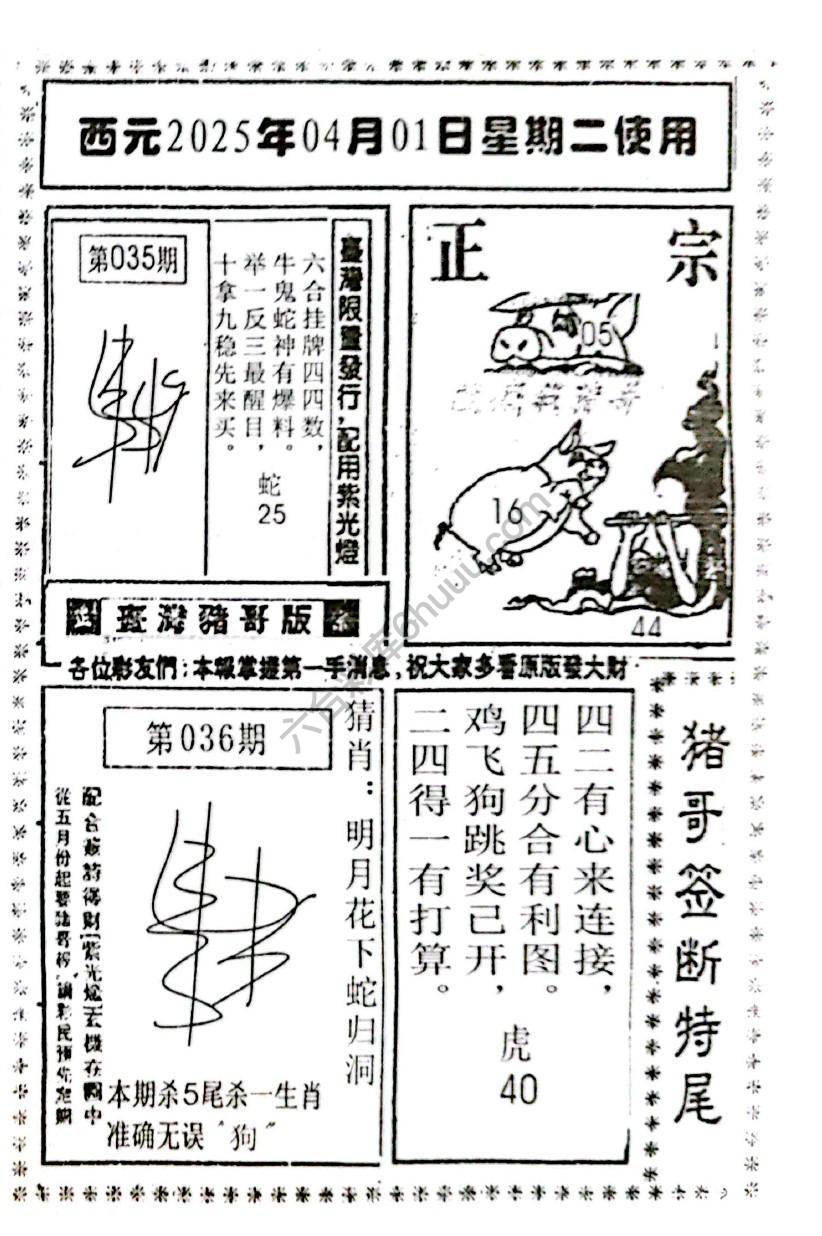 西元2025年04月01日星期二使用
臺灣限量發行，配用紫光燈
六合挂牌四四数，
牛鬼蛇神有爆料。
举一反三最醒目，
十拿九稳先来买。
蛇
25
第035期
正宗
05
16
44
臺灣豬哥版
各位彩友們：本報掌握第一手消息，祝大家多看原版發大財
第036期
猜肖：明月花下蛇归洞
本期杀5尾杀一生肖
准确无误“狗”
四二有心来连接，
四五分合有利图。
鸡飞狗跳奖已开，
二四得一有打算。
虎
40
猪哥签断特尾
六合彩库6huuu.com